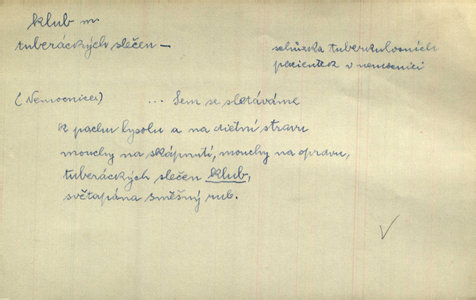 klub m
tuberáckých slečen —
schůzka tuberkulosních
pacientek v nemocnici
(Nemocnice) ... Sem se sletáváme
k pachu lysolu a na dietní stravu
mouchy na skápnutí, mouchy na opravu,
tuberáckých slečen klub,
světapána směšný rub.